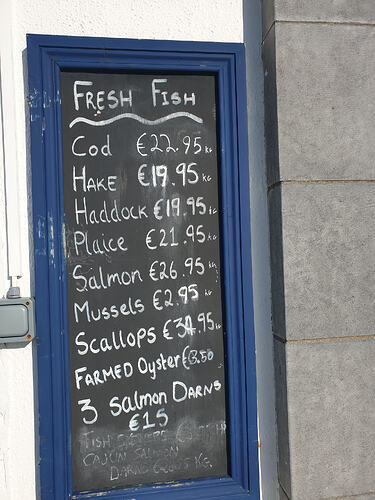 FRESH FISH
Cod €22.95 kg
HAKE €19.95 kg
Haddock €19.95 kg
Plaice €21.95 kg
Salmon €26.95 kg
Mussels €2.95 kg
Scallops €34.95 kg
FARMED Oyster €3.50
3 Salmon DARNS
€15
FISH
CAJUN SALMON
DARNS KG.